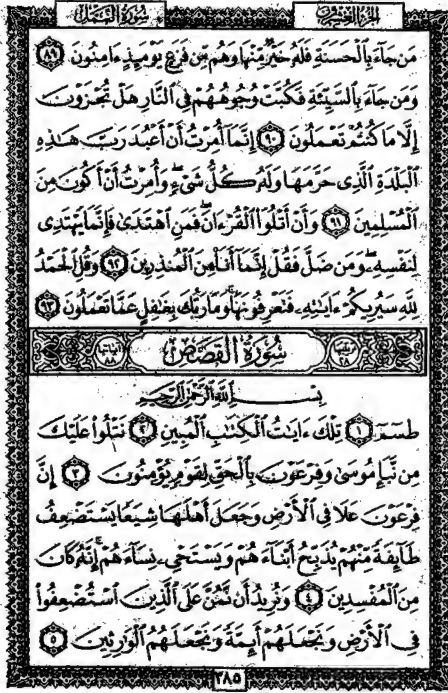 الجزء العشرون سورة النمل
مَن جَآءَ بِٱلْحَسَنَةِ فَلَهُۥ خَيْرٌ مِّنْهَا وَهُم مِّن فَزَعٍ يَوْمَئِذٍ ءَامِنُونَ ٨٩
وَمَن جَآءَ بِٱلسَّيِّئَةِ فَكُبَّتْ وُجُوهُهُمْ فِى ٱلنَّارِ هَلْ تُجْزَوْنَ
إِلَّا مَا كُنتُمْ تَعْمَلُونَ ٩٠ إِنَّمَآ أُمِرْتُ أَنْ أَعْبُدَ رَبَّ هَـٰذِهِ
ٱلْبَلْدَةِ ٱلَّذِى حَرَّمَهَا وَلَهُۥ كُلُّ شَىْءٍ ۖ وَأُمِرْتُ أَنْ أَكُونَ مِنَ
ٱلْمُسْلِمِينَ ٩١ وَأَنْ أَتْلُوَا۟ ٱلْقُرْءَانَ ۖ فَمَنِ ٱهْتَدَىٰ فَإِنَّمَا يَهْتَدِى
لِنَفْسِهِۦ ۖ وَمَن ضَلَّ فَقُلْ إِنَّمَآ أَنَا۠ مِنَ ٱلْمُنذِرِينَ ٩٢ وَقُلِ ٱلْحَمْدُ
لِلَّهِ سَيُرِيكُمْ ءَايَـٰتِهِۦ فَتَعْرِفُونَهَا ۚ وَمَا رَبُّكَ بِغَـٰفِلٍ عَمَّا تَعْمَلُونَ ٩٣
سُورَةُ ٱلْقَصَصِ
بِسْمِ ٱللَّهِ ٱلرَّحْمَـٰنِ ٱلرَّحِيمِ
طسٓمٓ ١ تِلْكَ ءَايَـٰتُ ٱلْكِتَـٰبِ ٱلْمُبِينِ ٢ نَتْلُوا۟ عَلَيْكَ
مِن نَّبَإِ مُوسَىٰ وَفِرْعَوْنَ بِٱلْحَقِّ لِقَوْمٍ يُؤْمِنُونَ ٣ إِنَّ
فِرْعَوْنَ عَلَا فِى ٱلْأَرْضِ وَجَعَلَ أَهْلَهَا شِيَعًا يَسْتَضْعِفُ
طَآئِفَةً مِّنْهُمْ يُذَبِّحُ أَبْنَآءَهُمْ وَيَسْتَحْىِۦ نِسَآءَهُمْ ۚ إِنَّهُۥ كَانَ
مِنَ ٱلْمُفْسِدِينَ ٤ وَنُرِيدُ أَن نَّمُنَّ عَلَى ٱلَّذِينَ ٱسْتُضْعِفُوا۟
فِى ٱلْأَرْضِ وَنَجْعَلَهُمْ أَئِمَّةً وَنَجْعَلَهُمُ ٱلْوَٰرِثِينَ ٥
٣٨٥